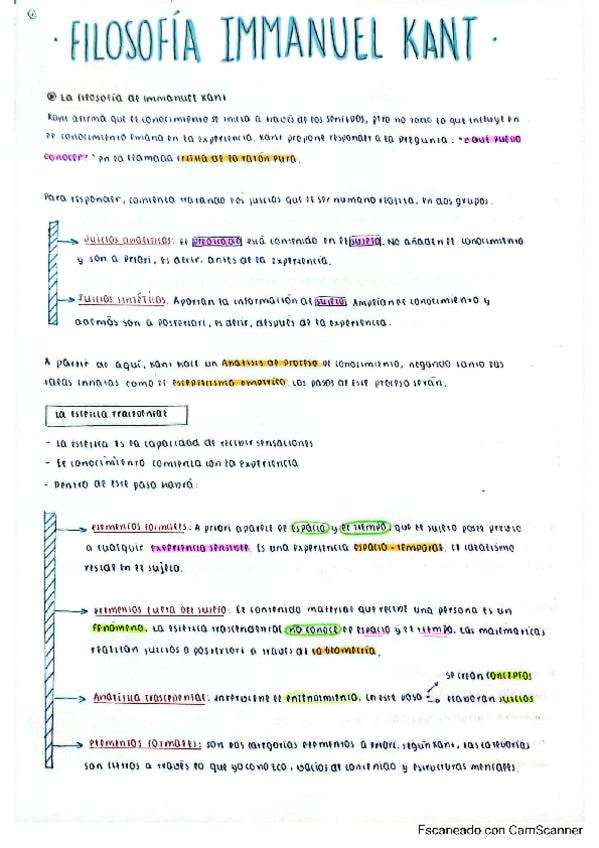 · FILOSOFÍA IMMANUEL KANT ·
La filosofía de Immanuel Kant
Kant afirma que el conocimiento se inicia a través de los sentidos, pero no todo lo que incluye en
el conocimiento emana en la experiencia. Kant propone responder a la pregunta: "¿qué puedo
conocer?" en la llamada crítica de la razón pura.
Para responder, comienza tratando los juicios que el ser humano realiza, en dos grupos.
Juicios analíticos: el predicado está contenido en el sujeto. No añaden el conocimiento
y son a priori, es decir, antes de la experiencia.
Juicios sintéticos. Aportan la información al sujeto. Amplían el conocimiento y
además son a posteriori, es decir, después de la experiencia.
A partir de aquí, Kant hace un Análisis de proceso de conocimiento, negando tanto las
ideas innatas como el escepticismo empírico. Los pasos de este proceso serán.
La estética
- La estética es la capacidad de recibir sensaciones
- El conocimiento comienza con la experiencia
- Dentro de este paso habrá:
elementos formales: A priori aparece el espacio y el tiempo, que el sujeto posee previo
a cualquier experiencia sensible. Es una experiencia espacio-temporal. El idealismo
reside en el sujeto.
elementos fuera del sujeto: El contenido material que recibe una persona es un
fenómeno. La estética trascendental no conoce el espacio y el tiempo. Las matemáticas
realizan juicios a posteriori a través de la geometría.
se crean conceptos
Analítica trascendental: interviene el entendimiento. En este paso
elaboran juicios
elementos formales: son las categorías elementos a priori. según Kant, las categorías
son filtros a través lo que yo conozco, vacíos de contenido y estructuras mentales.
Escaneado con CamScanner